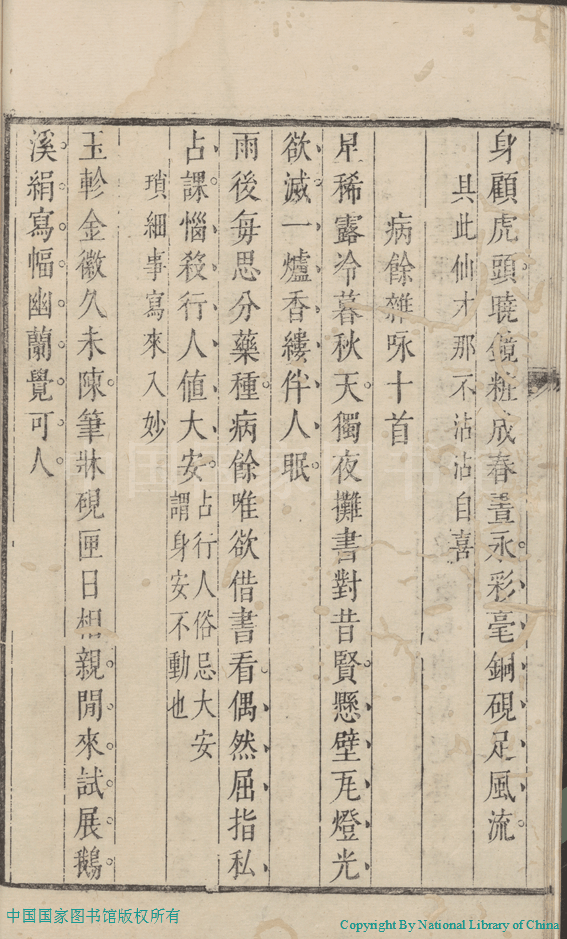 身顧虎頭曉鏡粧成春晝永彩毫銅硯足風流
具此仙才那不沾沾自喜
病餘雜咏十首
星稀露冷暮秋天獨夜攤書對昔賢懸壁瓦燈光
欲滅一爐香縷伴人眠
雨後每思分藥種病餘唯欲借書看偶然屈指私
占課惱殺行人値大安占行人俗忌大安
謂身安不動也
瑣細事寫來入妙
玉軫金徽久未陳筆牀硯匣日相親閒來試展鵝
溪絹寫幅幽蘭覺可人
中国国家图书馆版权所有
Copyright By National Library of China